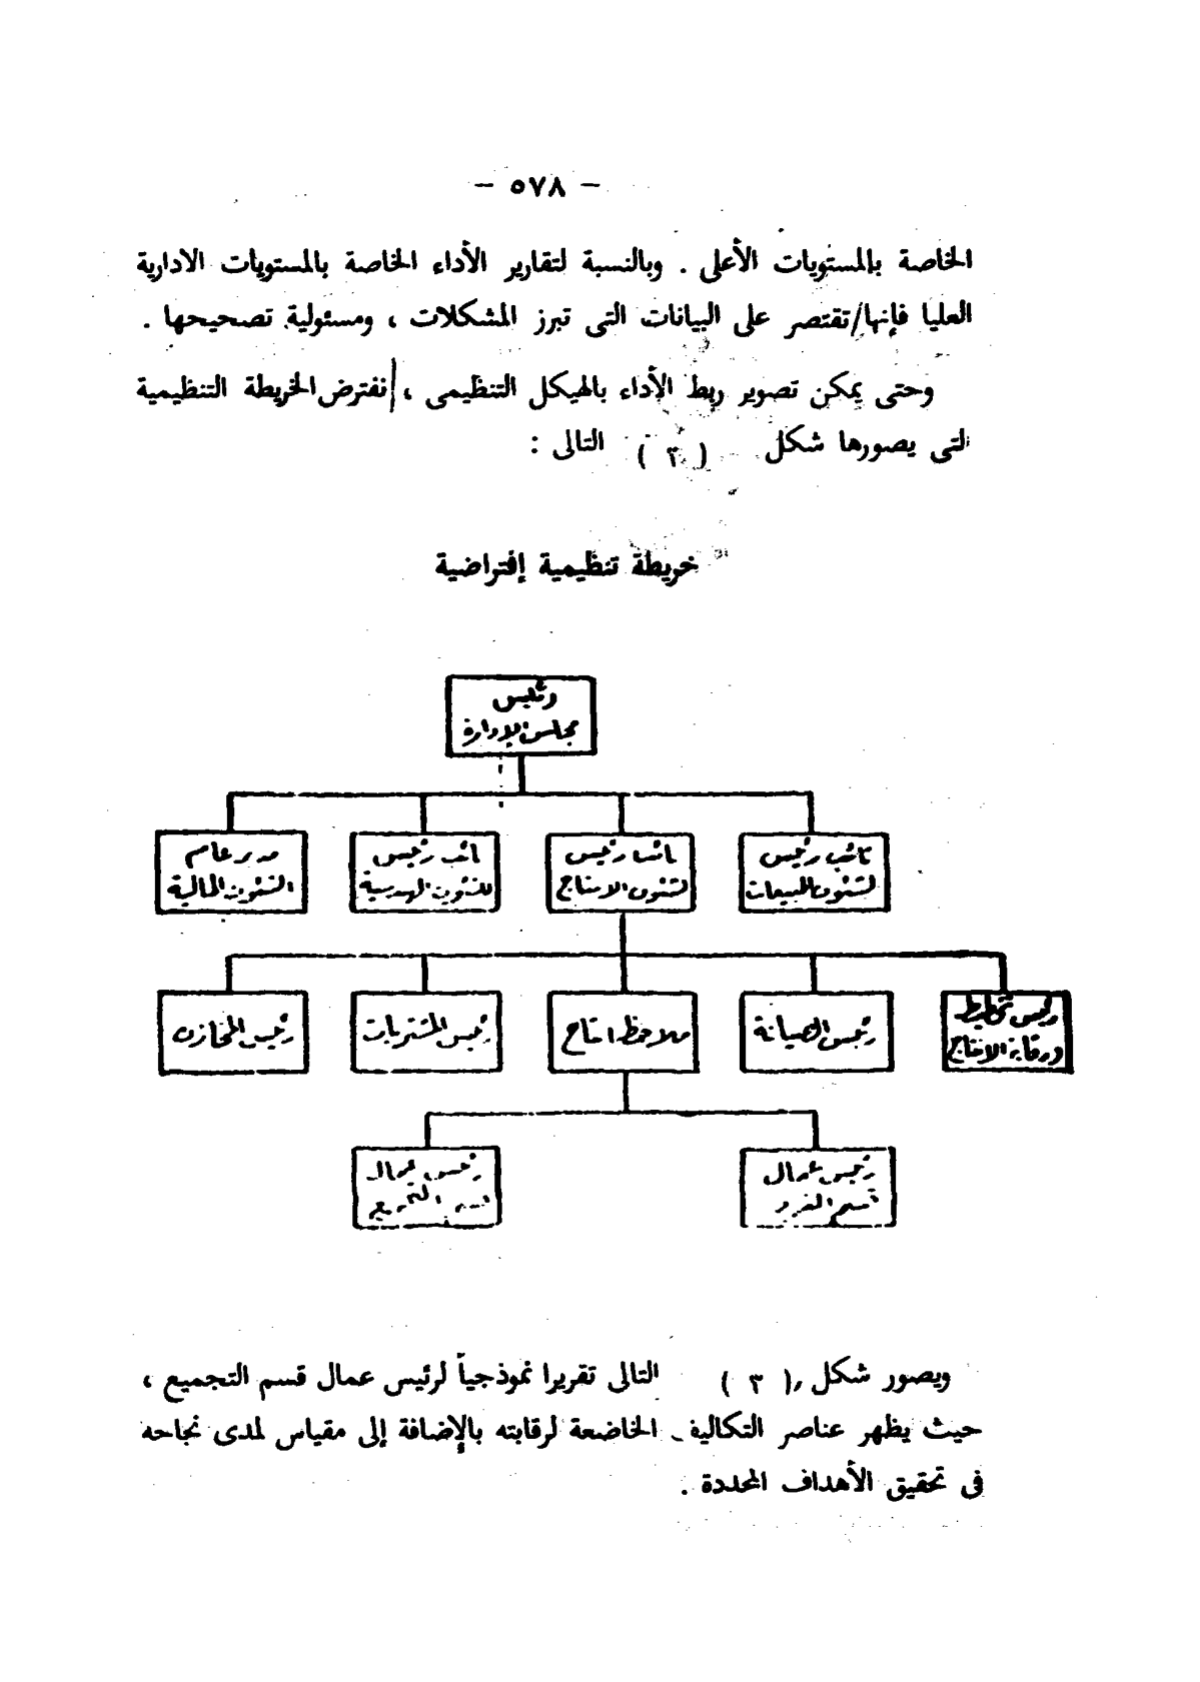 — ٥٧٨ —
الخاصة بالمستويات الأعلى . وبالنسبة لتقارير الأداء الخاصة بالمستويات الادارية
العليا فإنها/تقتصر على البيانات التى تبرز المشكلات ، ومسئولية تصحيحها .
وحتى يمكن تصوير ربط الأداء بالهيكل التنظيمى ، نفترض الخريطة التنظيمية
التى يصورها شكل ( ٢ ) التالى :
خريطة تنظيمية إفتراضية
رئيس
مجلس الإدارة
نائب رئيس
لشئون المبيعات
نائب رئيس
لشئون الانتاج
نائب رئيس
للشئون الهندسية
مدير عام
الشئون المالية
رئيس تخطيط
ورقابة الانتاج
رئيس الصيانة
ملاحظ انتاج
رئيس المشتريات
رئيس المخازن
رئيس عمال
قسم
رئيس عمال
قسم التجميع
ويصور شكل ( ٣ ) التالى تقريرا نموذجياً لرئيس عمال قسم التجميع ،
حيث يظهر عناصر التكاليف الخاضعة لرقابته بالإضافة إلى مقياس لمدى نجاحه
فى تحقيق الأهداف المحددة .